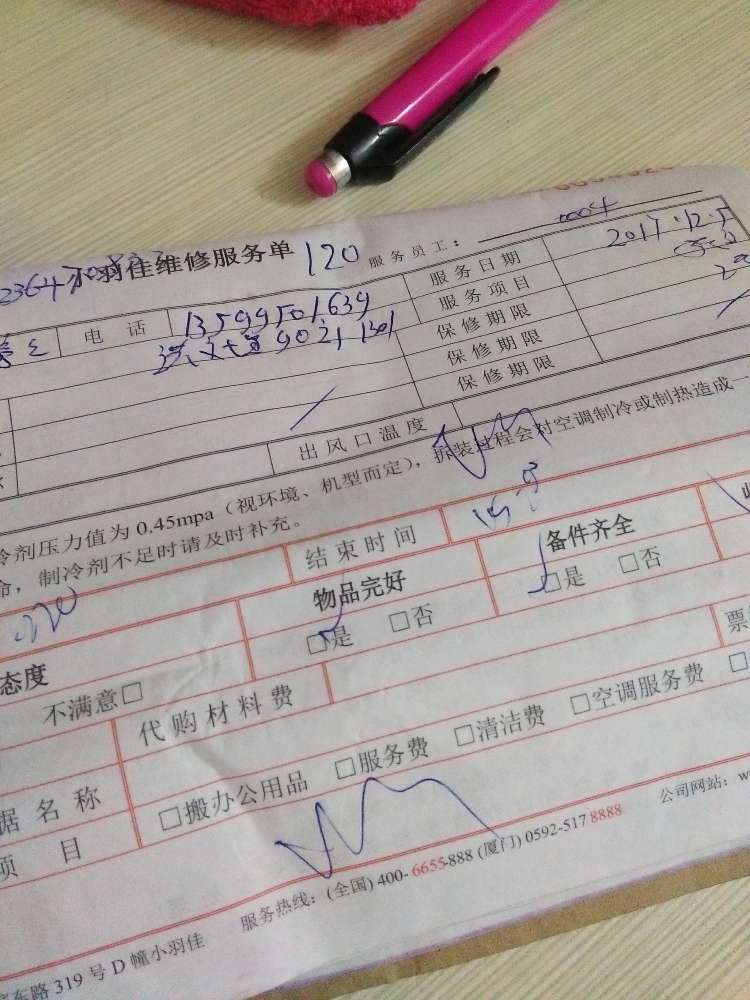 小羽佳维修服务单 120 服务员工: 0004
电话 13599501639 服务日期 2017.12.5
9021 1301 服务项目
保修期限
保修期限
出风口温度 保修期限
冷剂压力值为 0.45mpa（视环境、机型而定），拆装过程会对空调制冷或制热造成一
命，制冷剂不足时请及时补充。
结束时间
物品完好 备件齐全
□是 □否 □是 □否
态度
不满意□
代购材料费 票
据名称 □搬办公用品 □服务费 □清洁费 □空调服务费 □
项目
服务热线：(全国) 400-6655-888 (厦门) 0592-517 8888 公司网站：w
东路 319 号 D 幢小羽佳